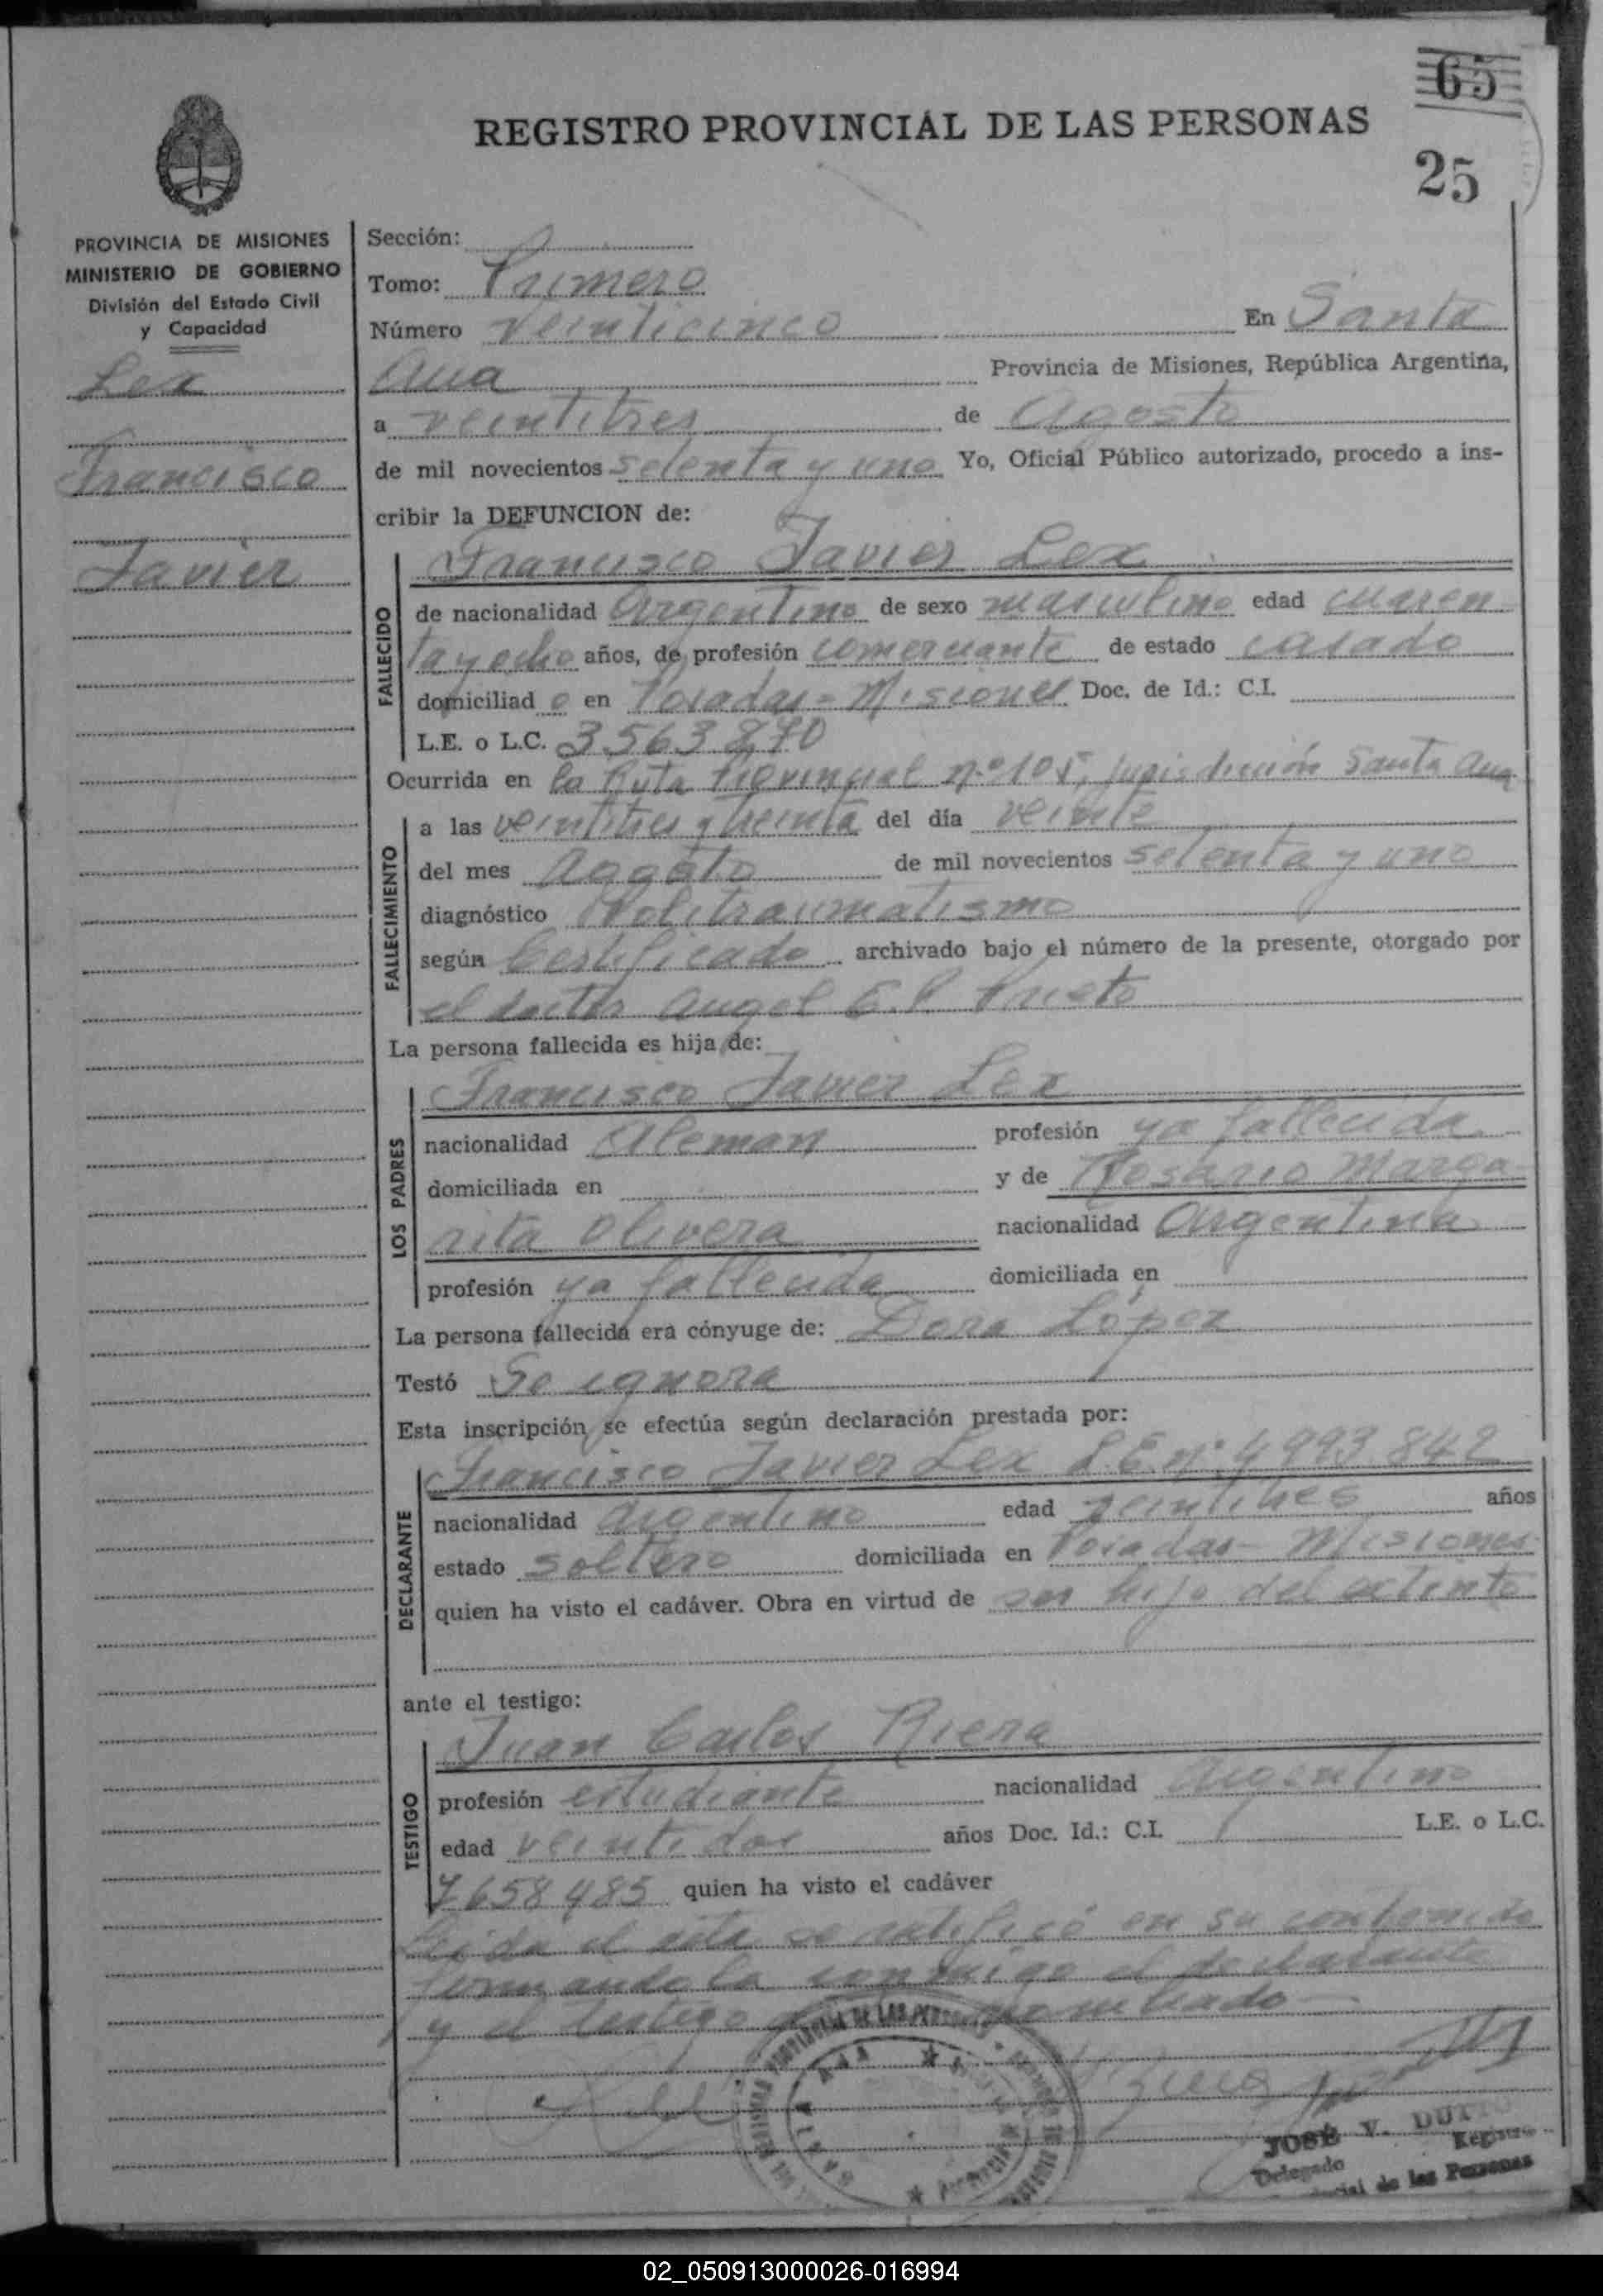 65
REGISTRO PROVINCIAL DE LAS PERSONAS
25
PROVINCIA DE MISIONES
MINISTERIO DE GOBIERNO
División del Estado Civil
y Capacidad
Lex
Francisco
Javier
Sección:
Tomo: Primero
Número Veinticinco En Santa
Ana Provincia de Misiones, República Argentina,
a veintitres de Agosto
de mil novecientos setenta y uno Yo, Oficial Público autorizado, procedo a ins-
cribir la DEFUNCION de:
Francisco Javier Lex
FALLECIDO
de nacionalidad Argentino de sexo masculino edad cuaren-
ta y ocho años, de profesión comerciante de estado casado
domiciliad o en Posadas - Misiones Doc. de Id.: C.I.
L.E. o L.C. 3563870
Ocurrida en la Ruta Provincial nº 105, jurisdicción Santa Ana
FALLECIMIENTO
a las veintitres y treinta del día veinte
del mes Agosto de mil novecientos setenta y uno
diagnóstico Politraumatismo
según Certificado archivado bajo el número de la presente, otorgado por
el doctor Angel E. P. Prieto
La persona fallecida es hija de:
LOS PADRES
Francisco Javier Lex
nacionalidad Aleman profesión ya fallecida
domiciliada en y de Rosario Marga-
rita Olivera nacionalidad Argentina
profesión ya fallecida domiciliada en
La persona fallecida era cónyuge de: Dora López
Testó Se ignora
Esta inscripción se efectúa según declaración prestada por:
DECLARANTE
Francisco Javier Lex L.E. nº 4993.842
nacionalidad argentino edad veintitres años
estado soltero domiciliada en Posadas - Misiones
quien ha visto el cadáver. Obra en virtud de ser hijo del extinto
ante el testigo:
TESTIGO
Juan Carlos Riera
profesión estudiante nacionalidad Argentino
edad veintidos años Doc. Id.: C.I. L.E. o L.C.
7658485 quien ha visto el cadáver
Leida el acta se ratificó en su contenido
firmandola conmigo el declarante
y el testigo nombrado
JOSÉ V. DUTTO
Delegado Registro
de las Personas
02_050913000026-016994